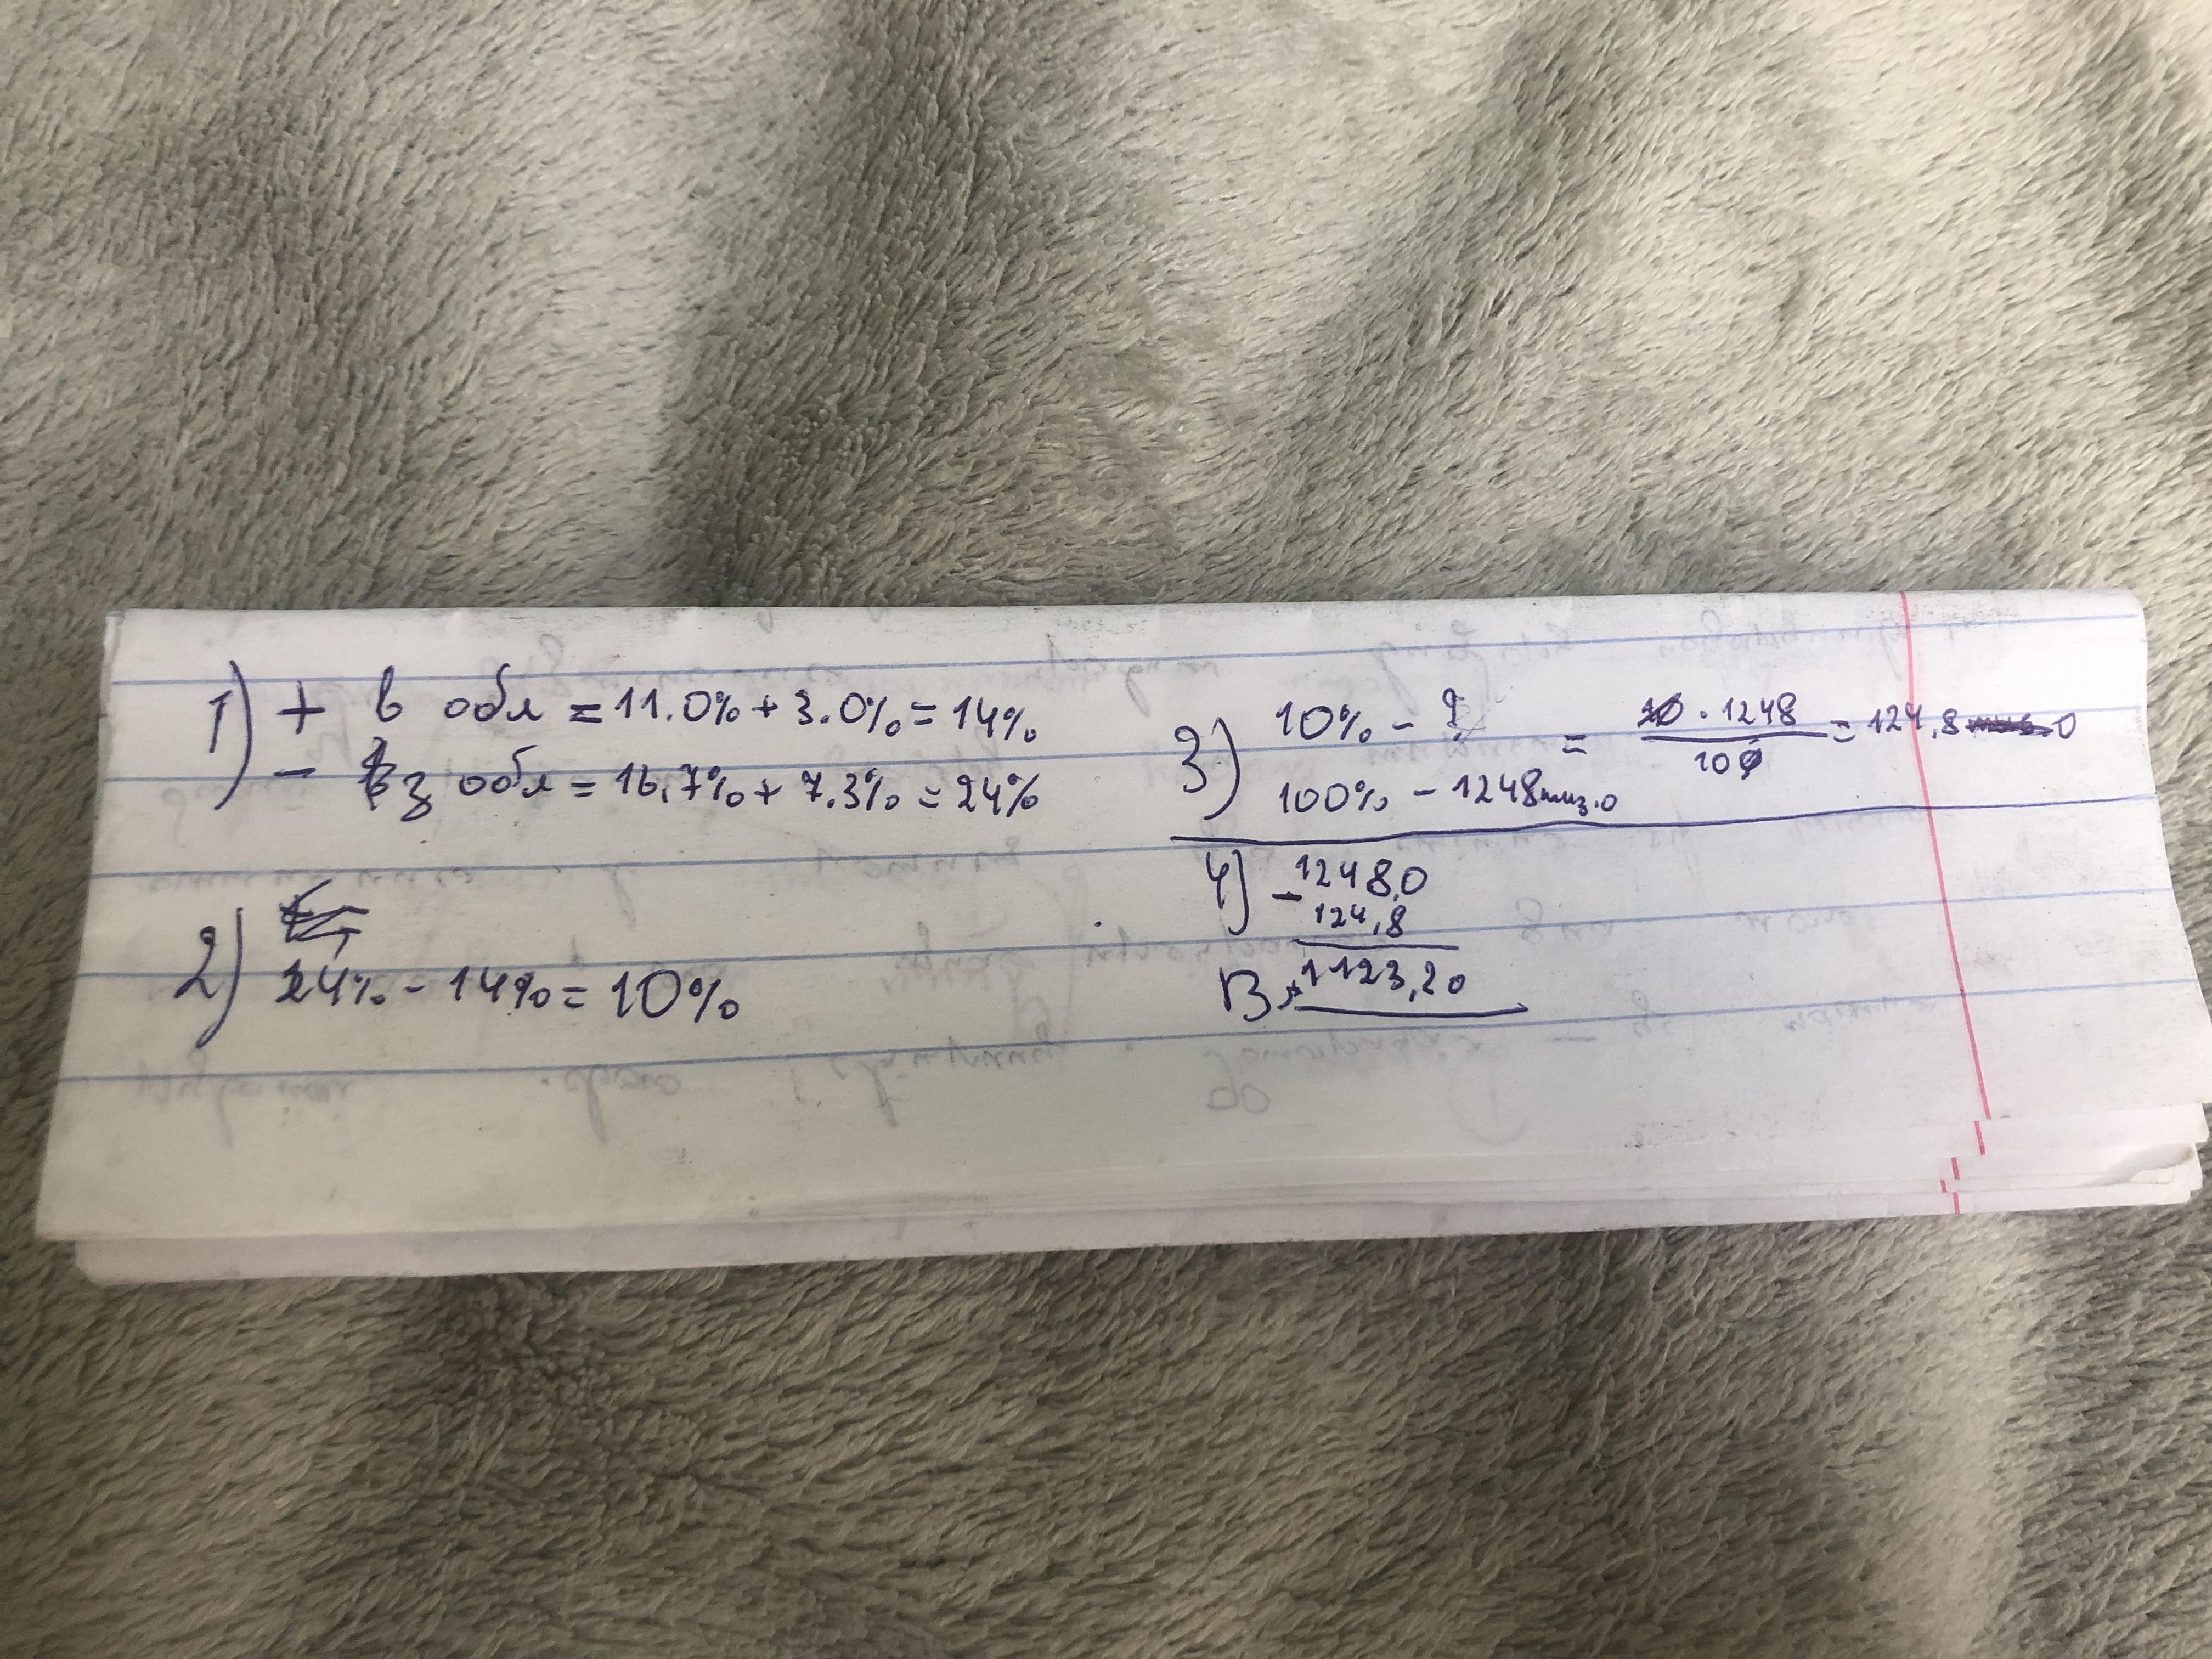 1) + в обл = 11.0% + 3.0% = 14%
- з обл = 16,7% + 7.3% = 24%
2)
24% - 14% = 10%
3) 10% - ?
100% - 1248тиз.о
= 10 · 1248 / 100 = 124,8 0
4) - 1248,0
124,8
В: 1123,20